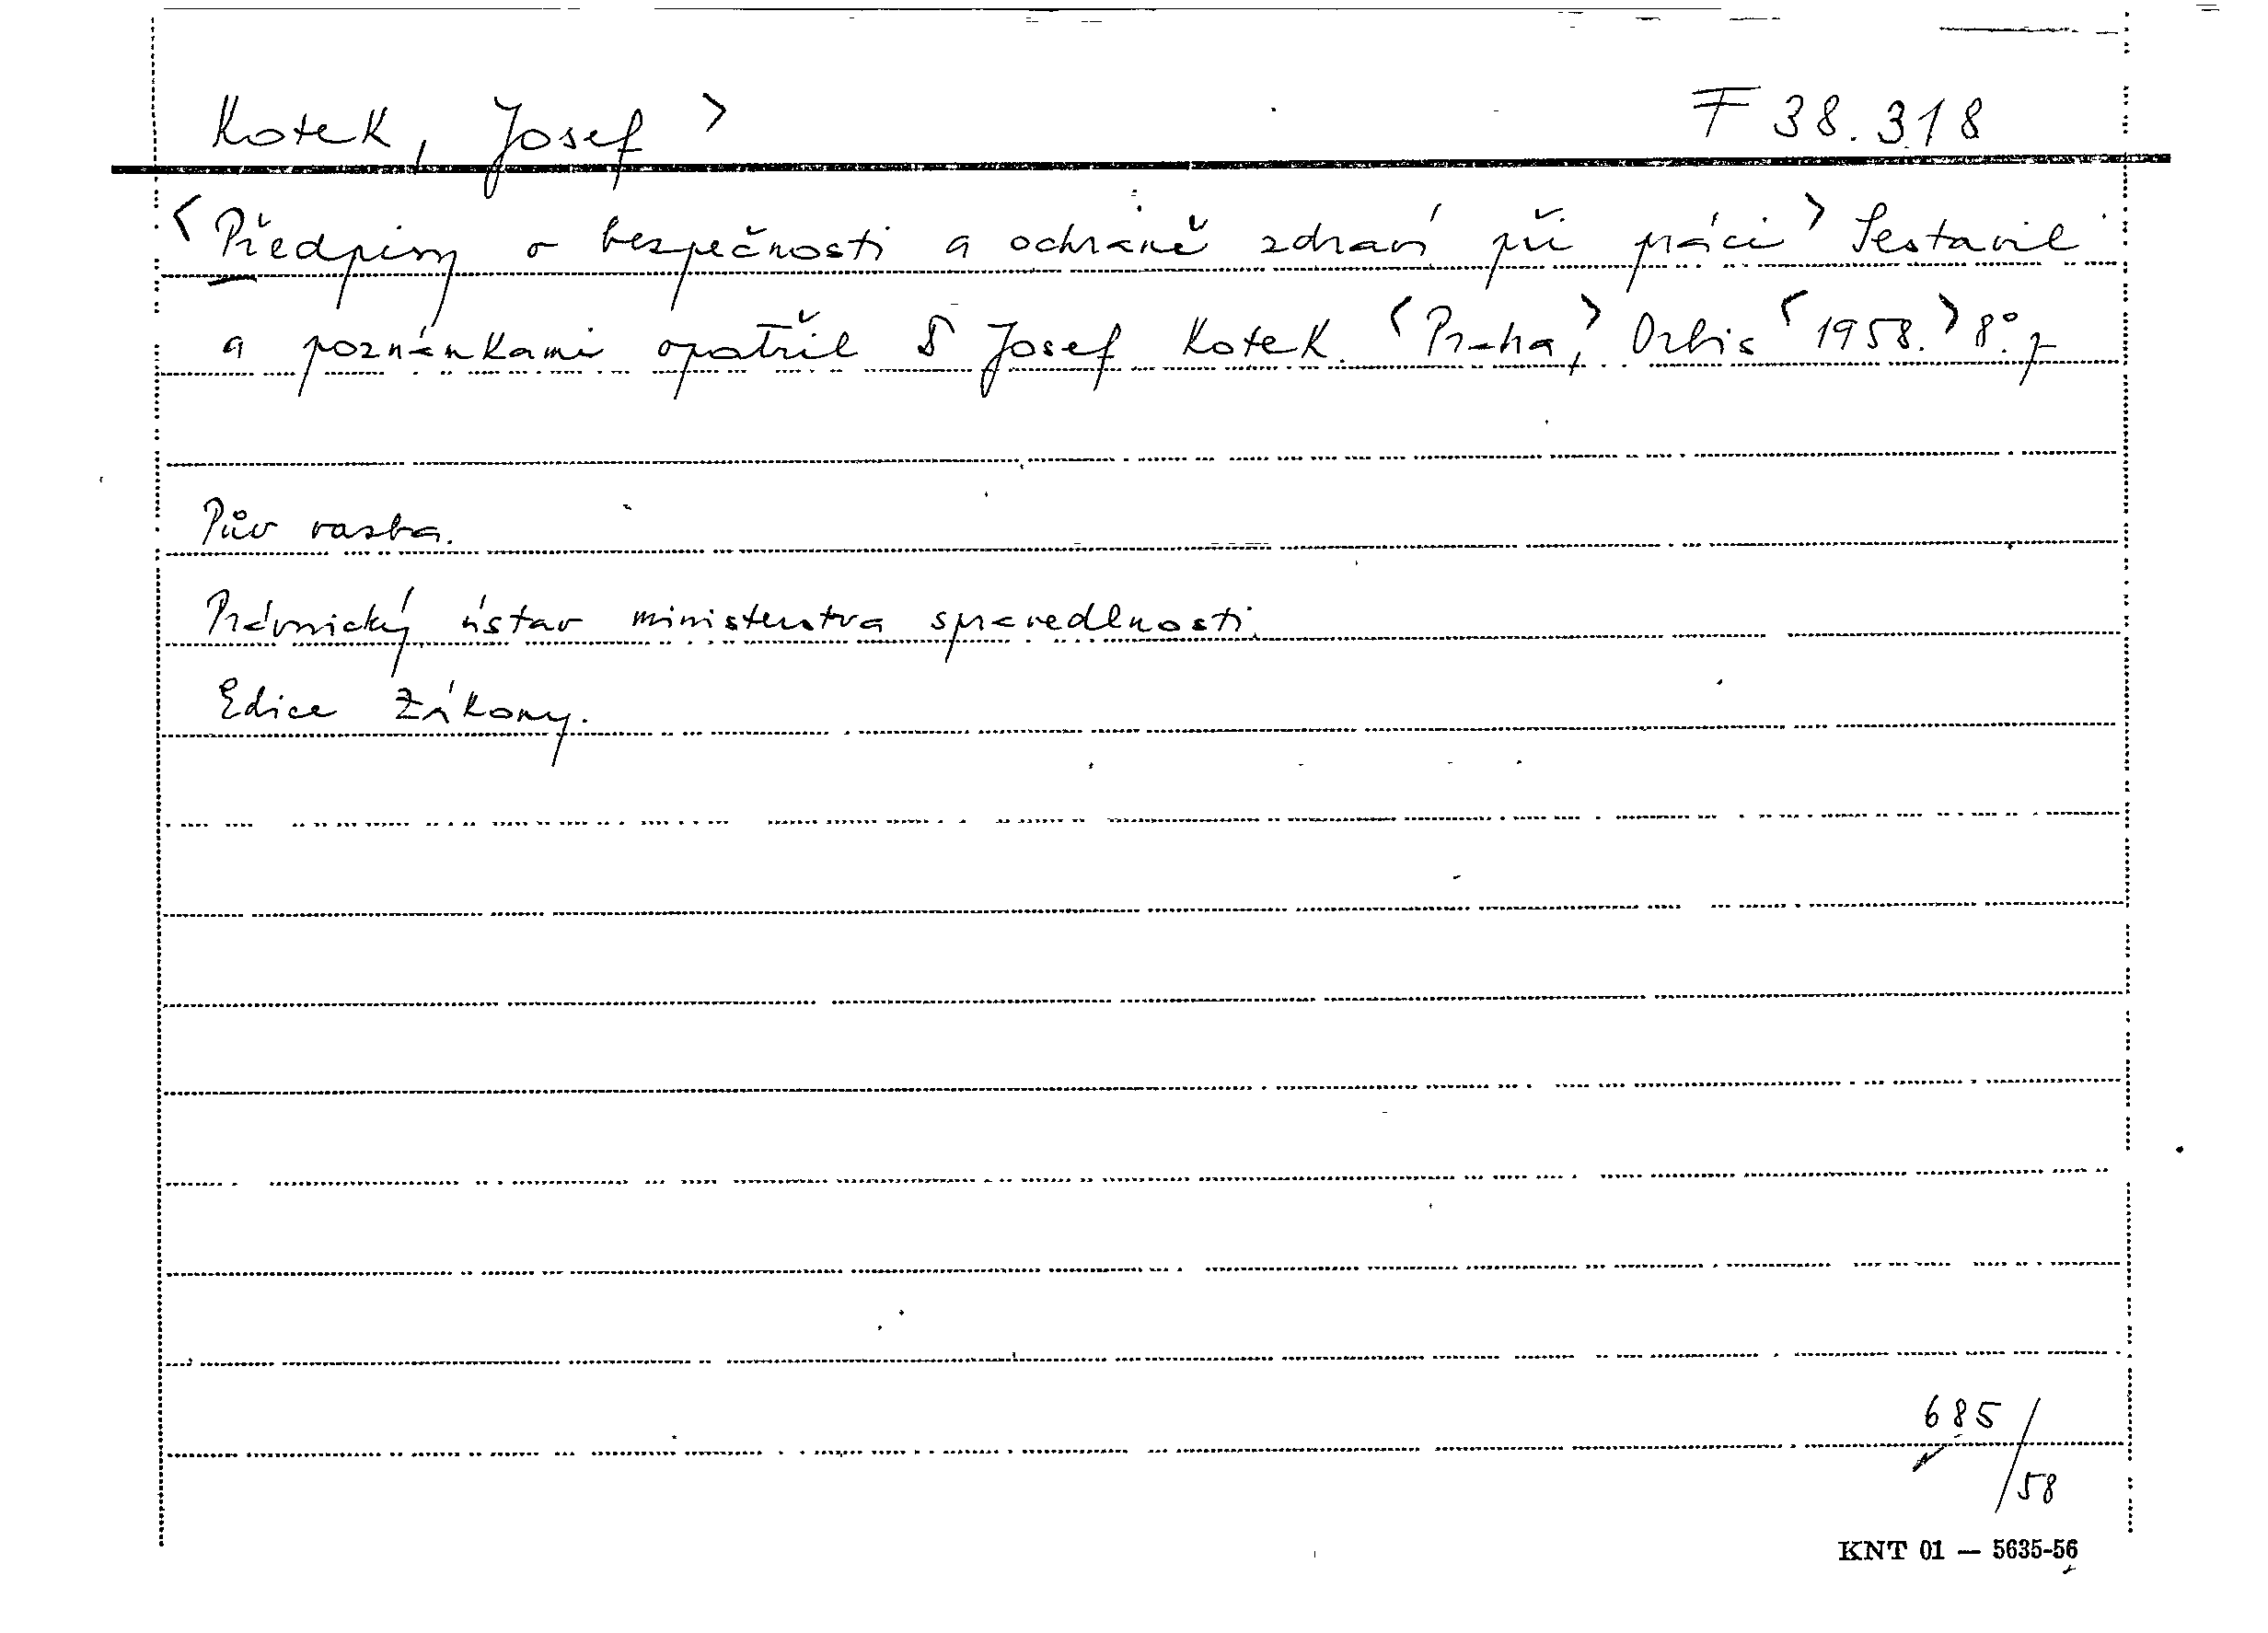 Kotek, Josef > F 38.318
<Předpisy o bezpečnosti a ochraně zdraví při práci> Sestavil
a poznámkami opatřil Josef Kotek. <Praha,> Orbis <1958.> 8°.
Pův vazba.
Právnický ústav ministerstva spravedlnosti.
Edice Zákony.
685/58
KNT 01 — 5635-56